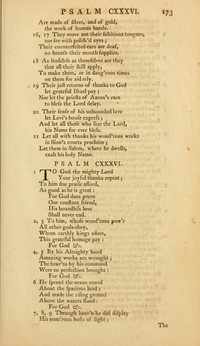 PSALM CXXXVI. 273
Are made of silver, and of gold,
the work of human hands.
16, 17 They move not their fabulous tongues,
nor see with polish'd eyes;
Their counterfeited ears are deaf,
no breath their mouth supplies.
18 As senseless as themselves are they
that all their skill apply,
To make them, or in dang'rous times
on them for aid rely.
19 Their just returns of thanks to God
let grateful Israel pay;
Nor let the priests of Aaron's race
to bless the Lord delay.
20 Their sense of his unbounded love
let Levi's house express;
And let all those who fear the Lord,
his Name for ever bless.
21 Let all with thanks his wond'rous works
in Sion's courts proclaim;
Let them in Salem, where he dwells,
exalt his holy Name.
PSALM CXXXVI.
1 TO God the mighty Lord
Your joyful thanks repeat;
To him due praise afford,
As good as he is great:
For God does prove
Our constant friend,
His boundless love
Shall never end.
2, 3 To him, whose wond'rous pow'r
All other gods obey,
Whom earthly kings adore,
This grateful homage pay:
For God &c.
4, 5 By his Almighty hand
Amazing works are wrought;
The heav'ns by his command
Were to perfection brought:
For God &c.
6 He spread the ocean round
About the spacious land;
And made the rising ground
Above the waters stand:
For God &c.
7, 8, 9 Through heav'n he did display
His num'rous hosts of light;
The